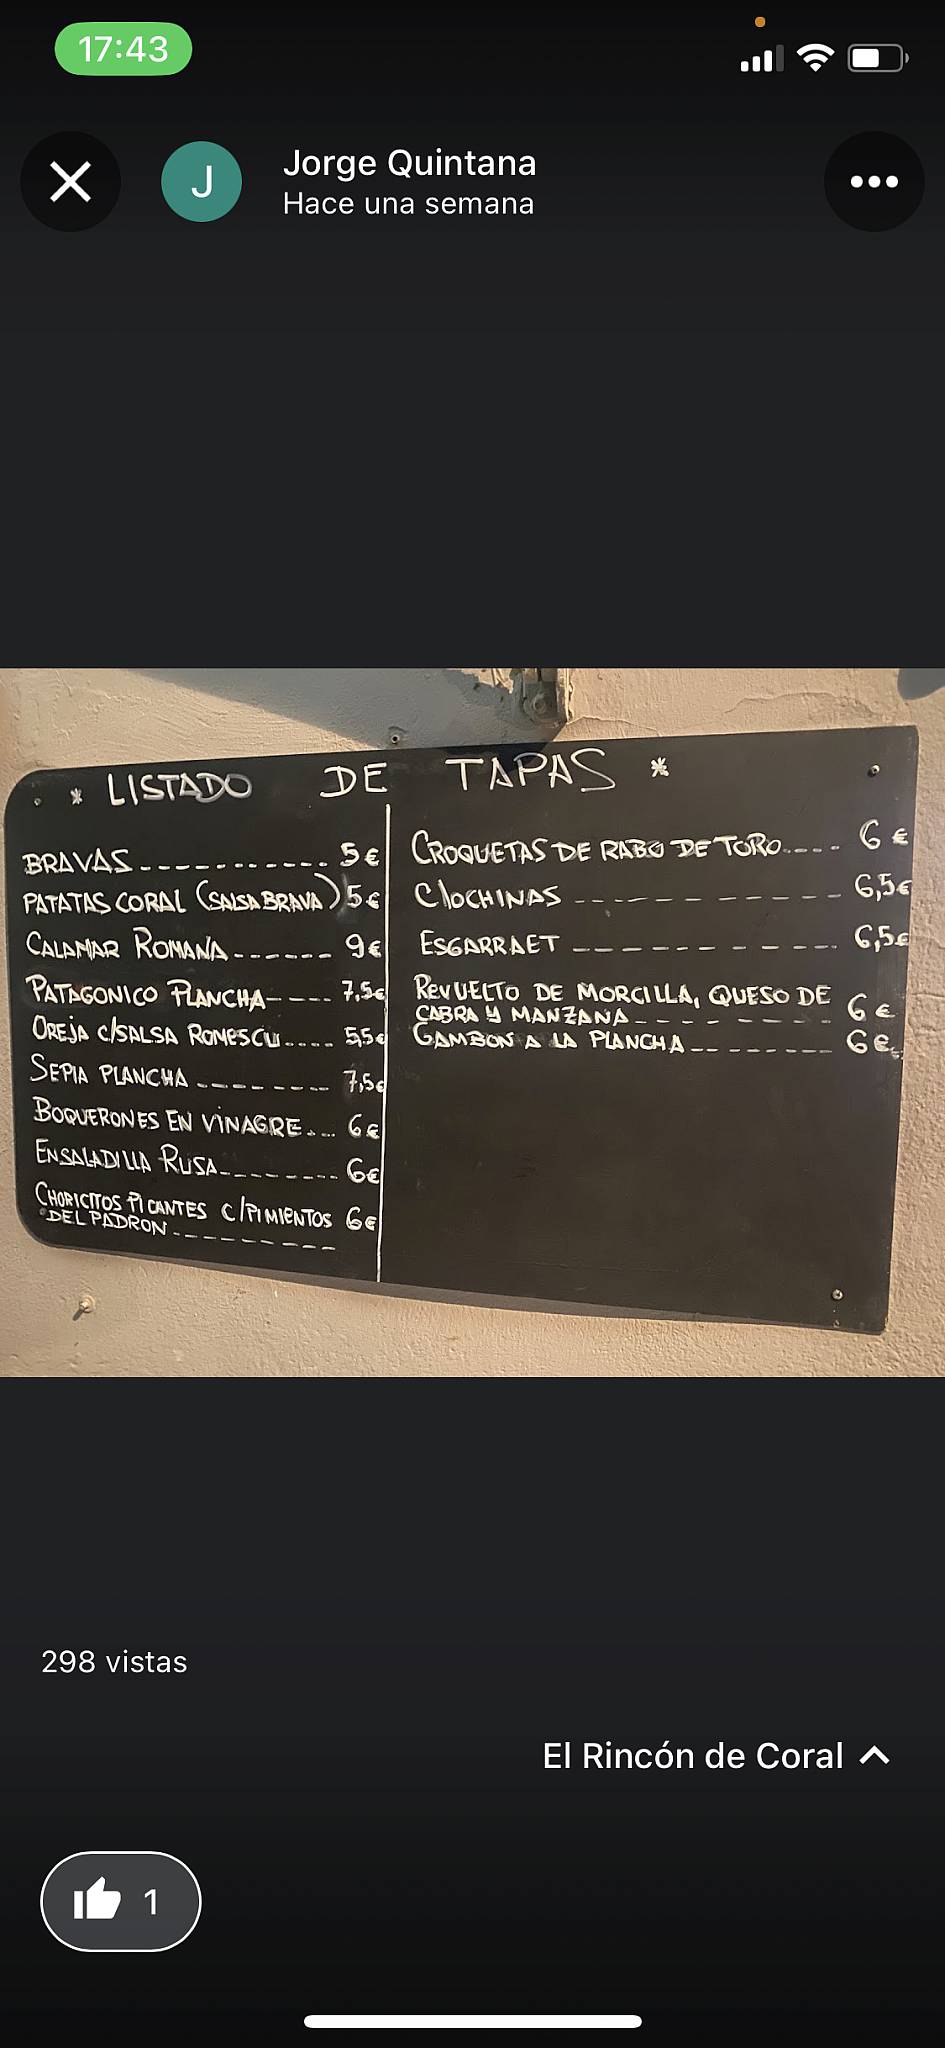 17:43
J
Jorge Quintana
Hace una semana
* LISTADO DE TAPAS *
BRAVAS ------------ 5€
PATATAS CORAL (SALSA BRAVA) 5€
CALAMAR ROMANA ------ 9€
PATAGONICO PLANCHA ---- 7,5€
OREJA C/SALSA ROMESCU .... 5,5€
SEPIA PLANCHA -------- 7,5€
BOQUERONES EN VINAGRE ... 6€
ENSALADILLA RUSA -------- 6€
CHORICITOS PICANTES C/PIMIENTOS 6€
DEL PADRON ----------
CROQUETAS DE RABO DE TORO .... 6€
CLOCHINAS ------------ 6,5€
ESGARRAET ------------ 6,5€
REVUELTO DE MORCILLA, QUESO DE
CABRA Y MANZANA --------- 6€
GAMBON A LA PLANCHA -------- 6€
298 vistas
El Rincón de Coral
1